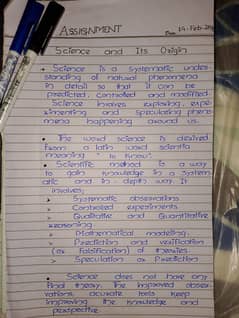 ASSIGNMENT
Date 14-Feb-20
Science and Its Origin
• Science is a systematic under
standing of natural phenomena
in detail so that it can be
predicted, controlled and modified.
Science involves exploring, expe
rimenting and speculating pheno
mena happening around us.
• The word science is derived
from a latin word scientia
meaning "to know".
• Scientific method is a way
to gain knowledge in a system
atic and in depth way. It
involves;
> Systematic observations
> Controlled experiments
> Qualitative and Quantitative
reasoning
> Mathematical modeling.
> Prediction and verification
(or falsification) of theories.
> Speculation or Prediction
• Science does not have any
final theory. The improved obser
vations, accurate tools keep
improving the knowledge and
perspective